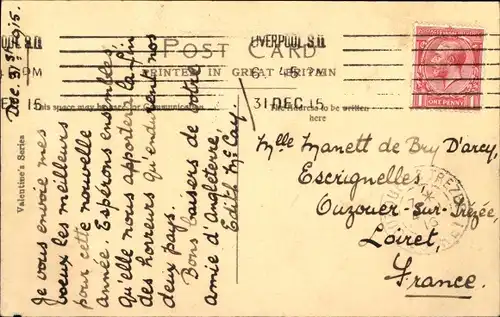 Dec. 31st 1915.
Je vous envoie mes
voeux les meilleurs
pour cette nouvelle
année. Esperons ensembles
qu'elle nous apportera la fin
des horreurs qu'endurent nos
deux pays.
Bons baisers de votre
amie d'Angleterre,
Edith Mc Cay.
Valentine's Series
POST CARD
PRINTED IN GREAT BRITAIN
This space may be used for Communication
The Address to be written
here
LIVERPOOL S.O
6 45 PM
31 DEC 15
ONE PENNY
Mlle Manett de Bry D'arcy,
Escrignelles
Ouzouer-Sur-Trézée,
Loiret,
France.